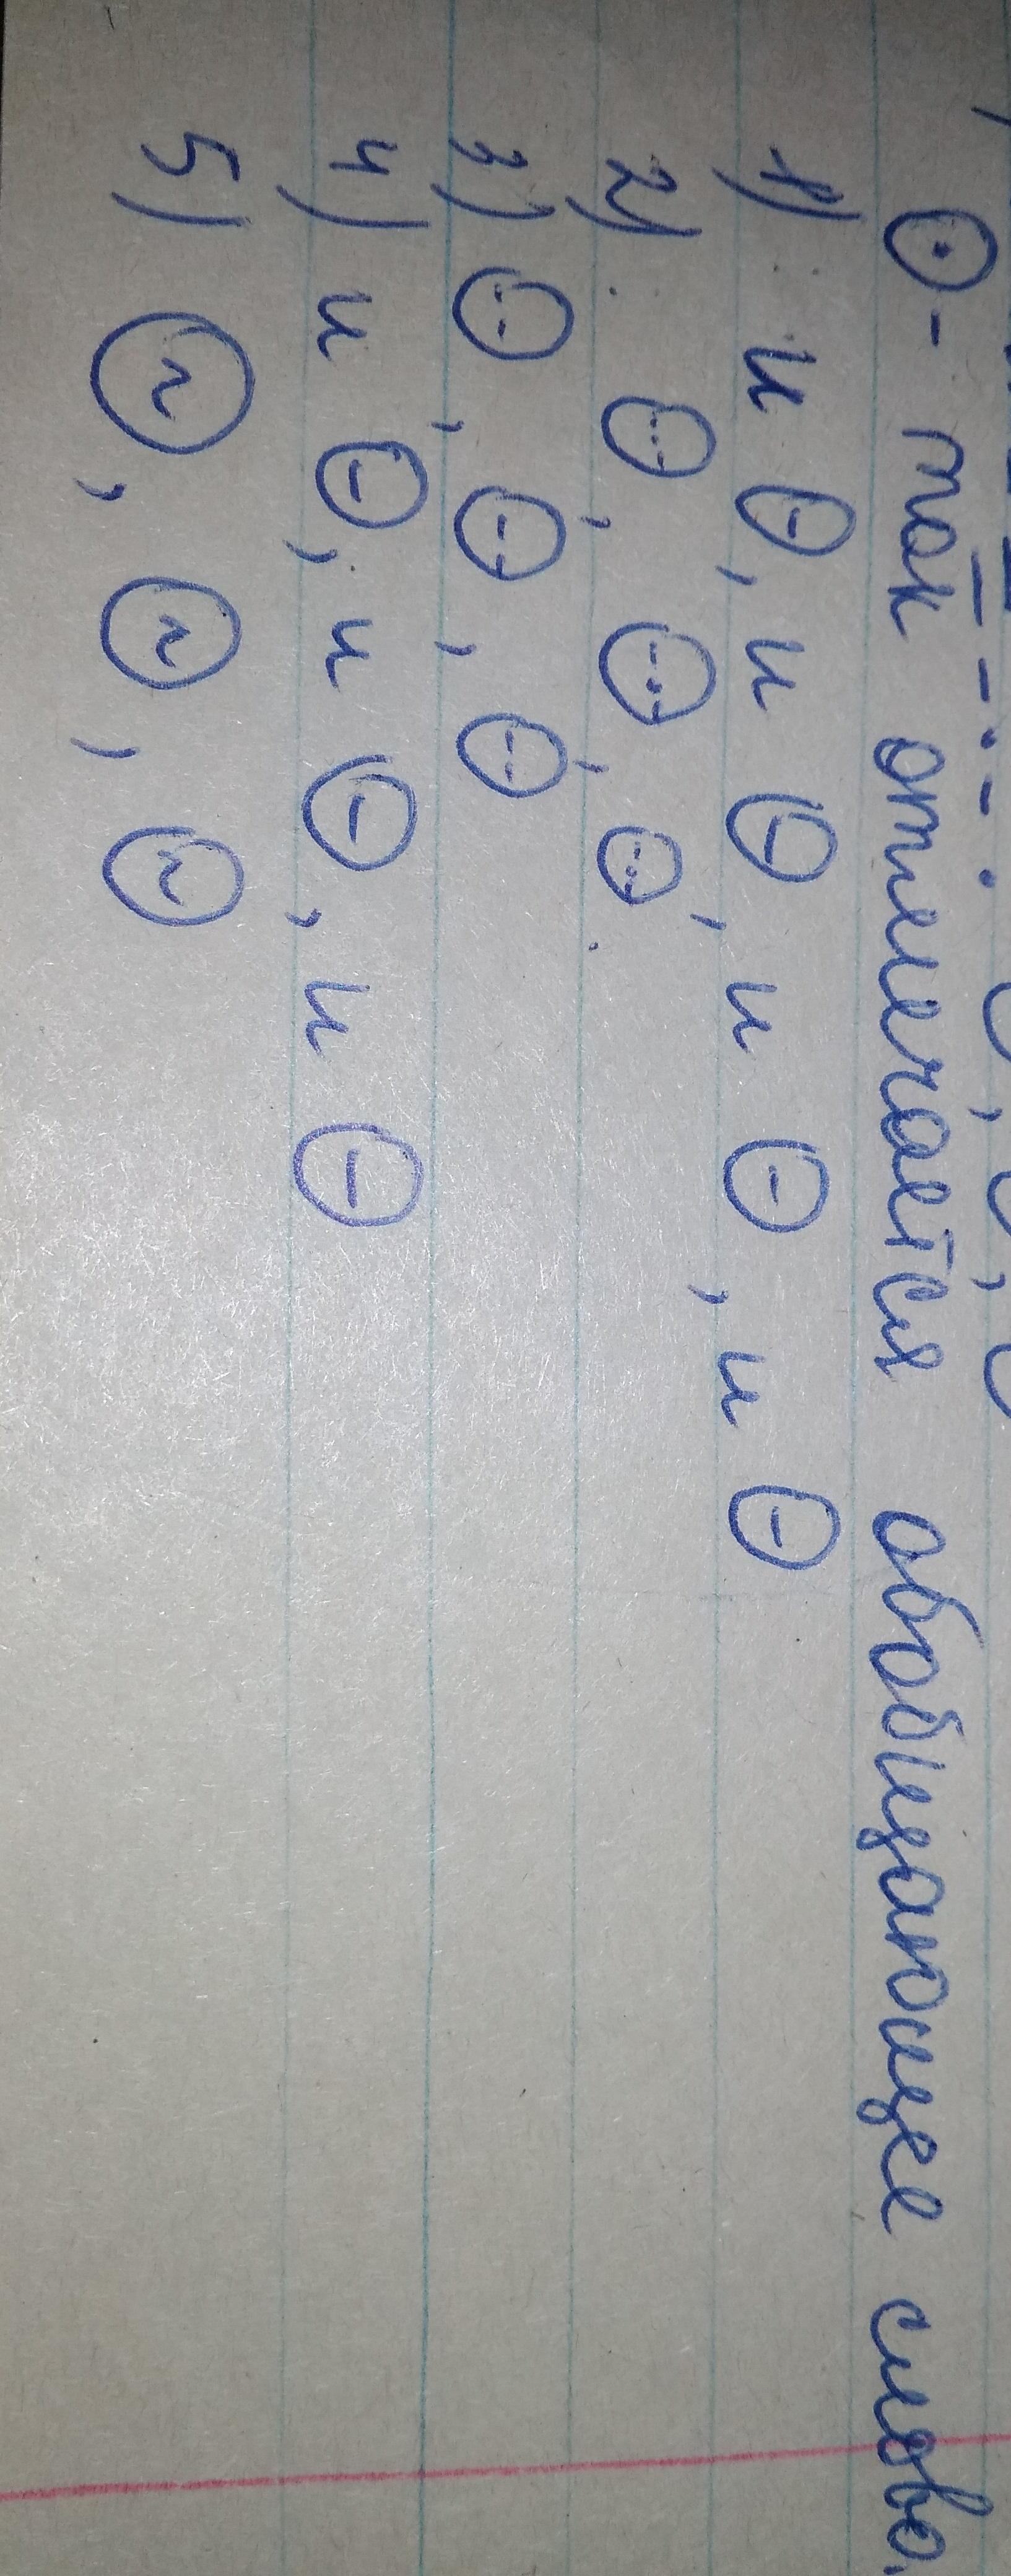 ⊙ - так отмечается обобщающее слово.
1) и ⊖, и ⊖, и ⊖, и ⊖
2) ⊖, ⊖, ⊖
3) ⊖, ⊖, ⊖
4) и ⊖, и ⊖, и ⊖
5) (~), (~), (~)